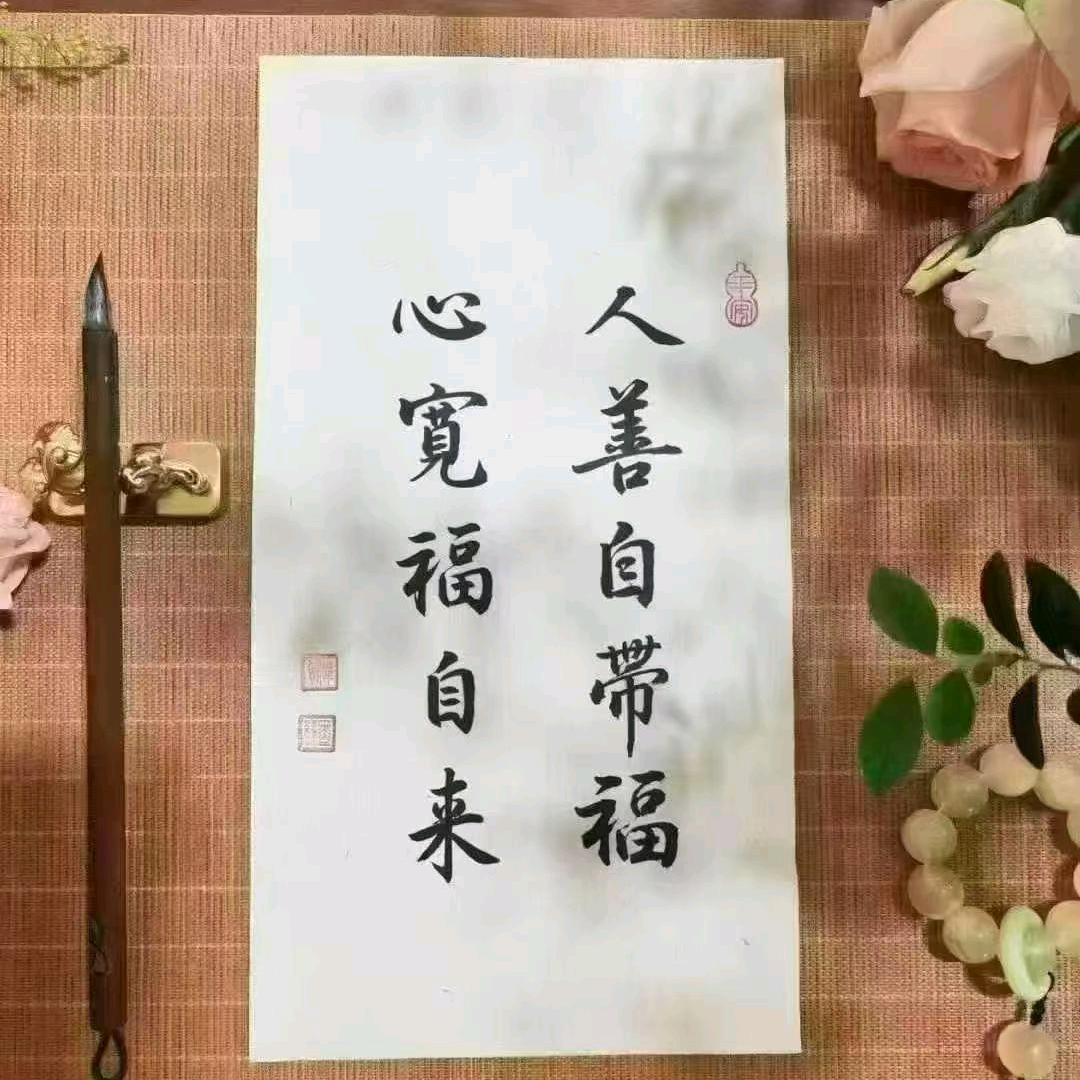 人善自帶福
心寬福自来